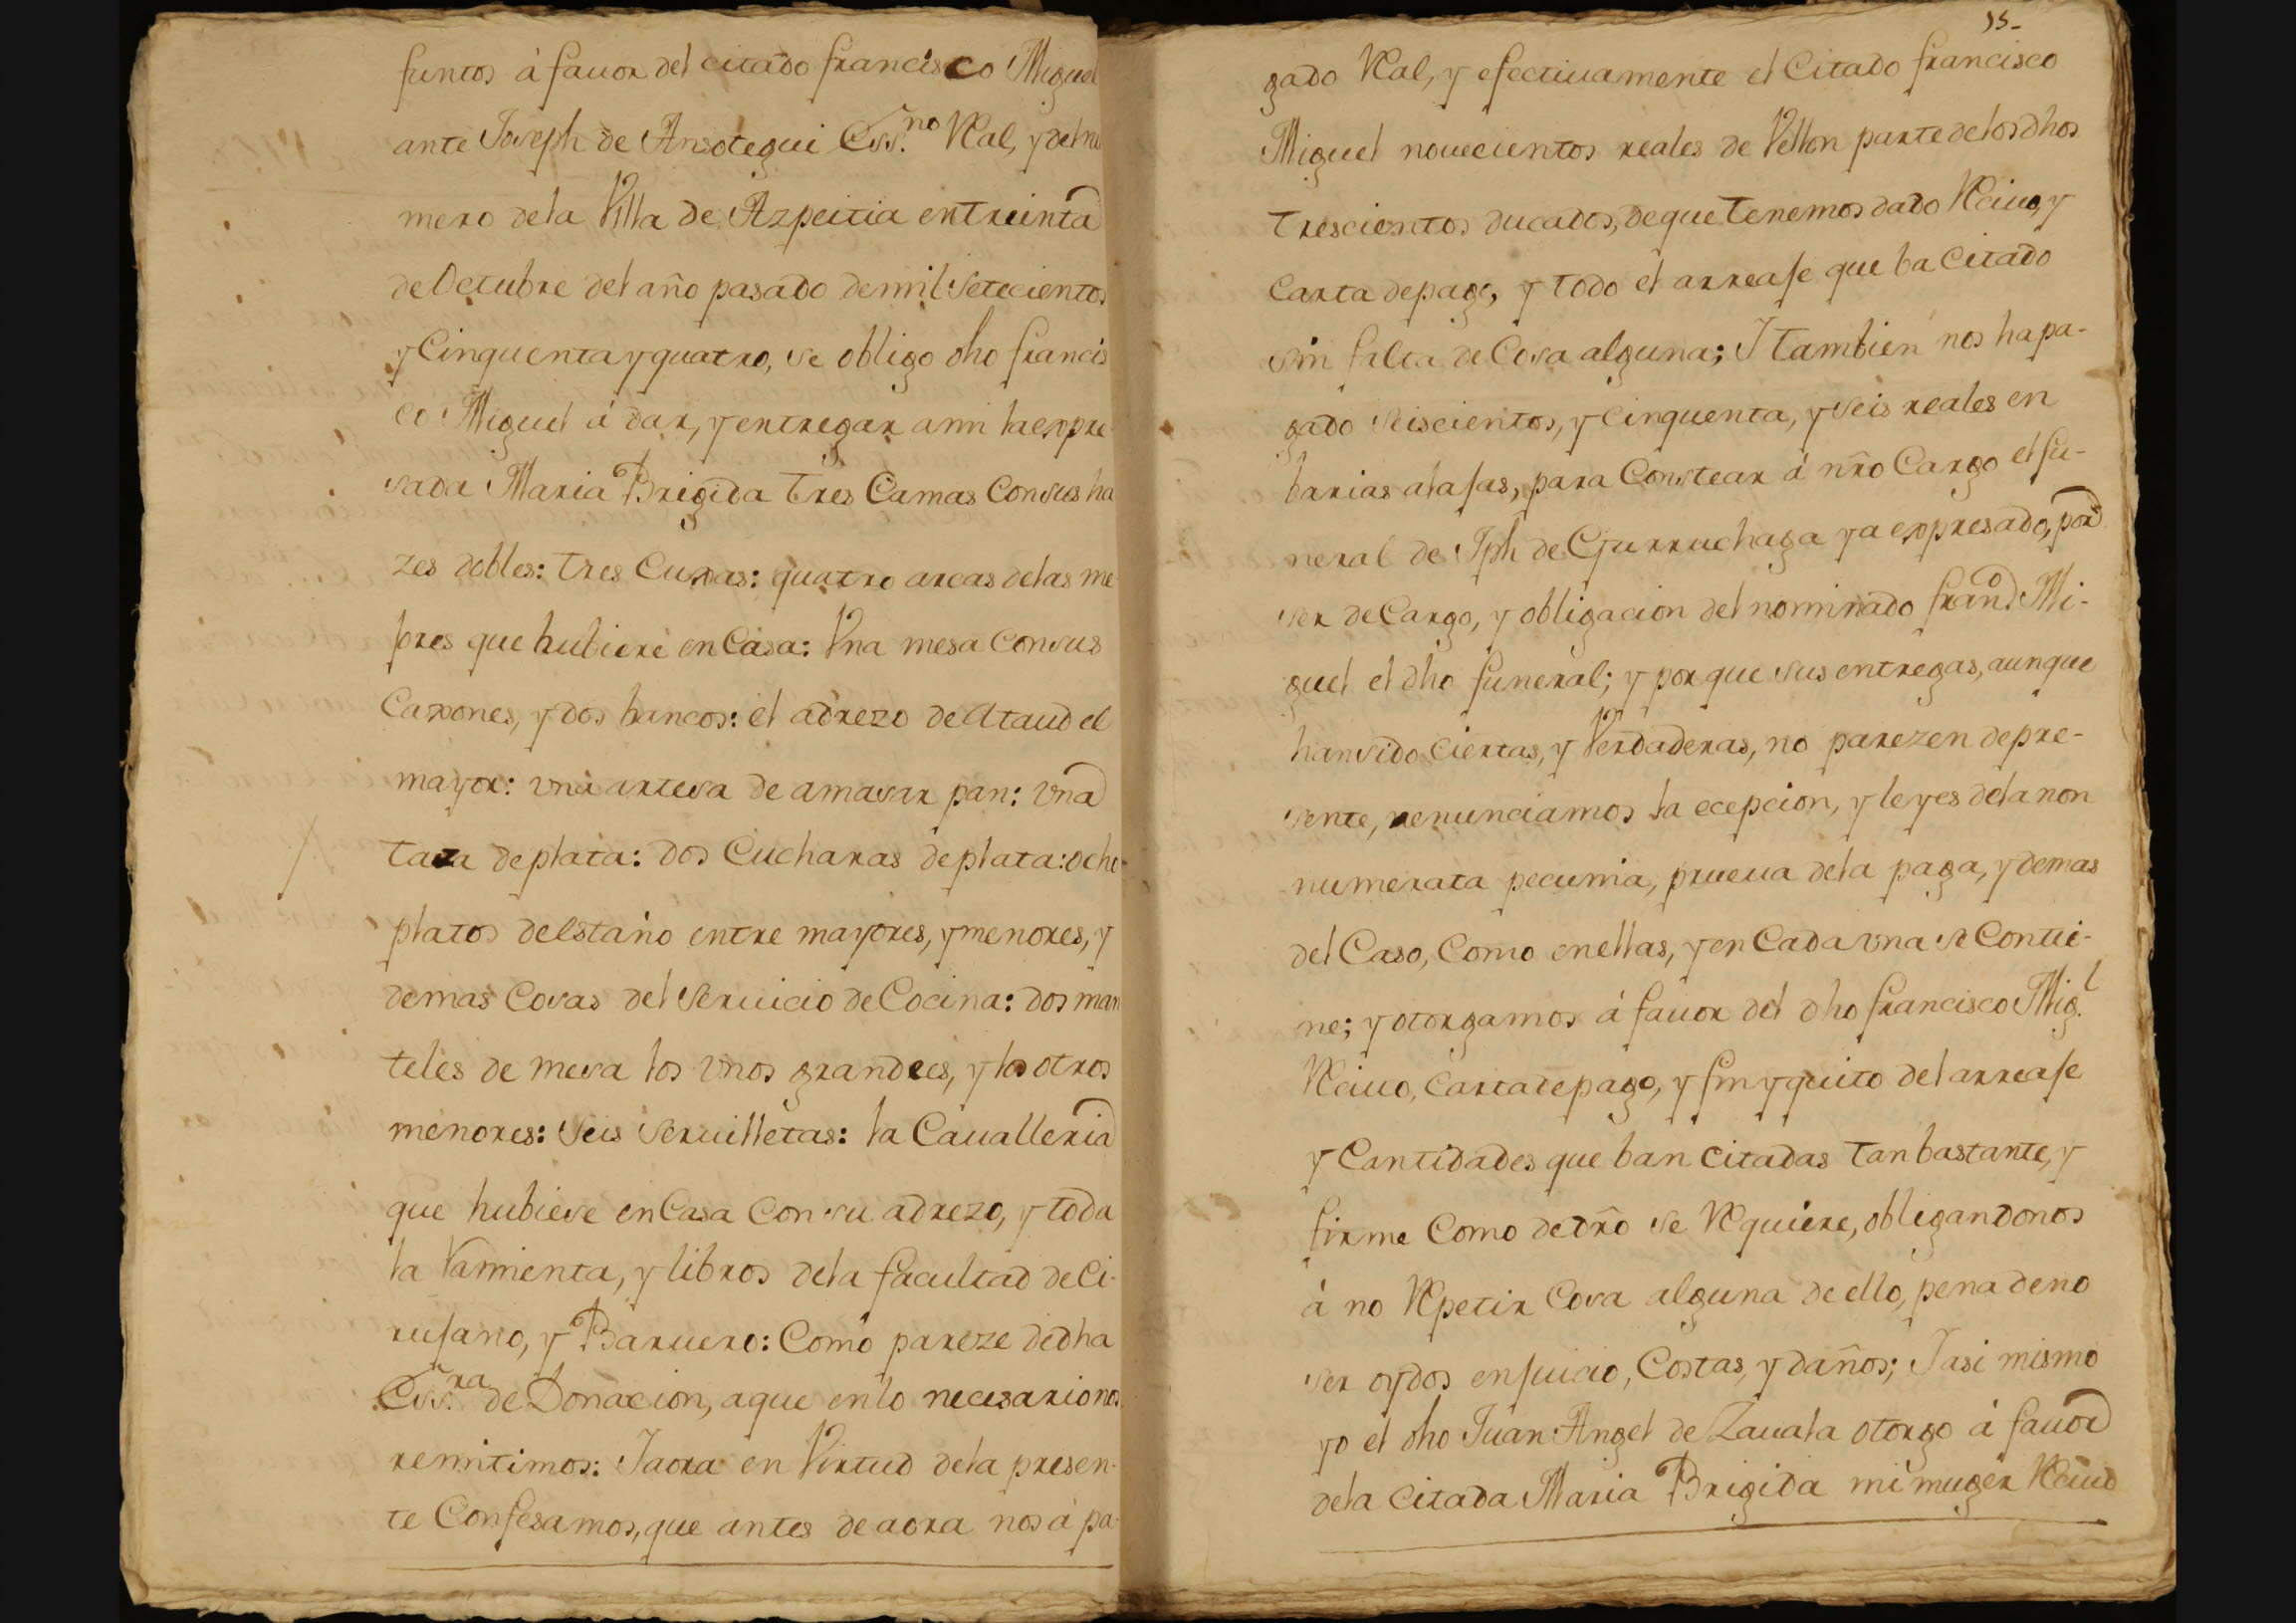 funtos á fauor del citado francisco Miguel
ante Joseph de Ansotegui Ess.no Real, y del nu
mero dela Villa de Azpeitia entreinta
de Octubre del año pasado demil setecientos
y Cinquenta y quatro, se obligo dho francis
co Miguel á dar, y entregar ami la expre
sada Maria Brigida tres Camas Consus ha
zes dobles: tres Cuxas: quatro arcas delas me
jores que hubiere en Casa: Vna mesa Consus
Caxones, y dos bancos: el adrezo de Ataud el
mayor: vna artesa de amasar pan: vna
taza deplata: dos Cucharas deplata: ocho
platos delstaño entre mayores, y menores, y
demas Cosas del Seruicio de Cocina: dos man
teles de mesa los vnos grandees, y los otros
menores: Seis Seruilletas: la Caualleria
que hubiese en Casa Consu adrezo, y toda
la Varmienta, y libros dela facultad de Ci-
rujano, y Baruero: Como pareze dedha
Ess.ra de Donacion, aque enlo necesario nos
remitimos: Jaora en Virtud dela presen-
te Confesamos, que antes de aora nos á pa-
15-
gado Real, y efectiuamente el Citado francisco
Miguel nouecientos reales de Vellon parte delos dhos
trescientos ducados, deque tenemos dado Reciuo, y
Carta depago, y todo el arreaje que ba Citado
sin falta de Cosa alguna; J tambien nos hapa-
gado Seiscientos, y Cinquenta, y Seis reales en
barias alajas, para Constear á nr̃o Cargo el fu-
neral de Jph de Egurruchaga ya expresado, por
ser de Cargo, y obligacion del nominado fran.co Mi-
guel el dho funeral; y porque sus entregas, aunque
hansido Ciertas, y Verdaderas, no parezen depre-
sente, renunciamos la ecepcion, y leyes dela non
numerata pecunia, prueua dela paga, y demas
del Caso, Como enellas, y en Cada vna se Contie-
ne; y otorgamos á fauor del dho francisco Mig.l
Reciuo, Carta depago, y fin y quito del arreaje
y Cantidades que ban Citadas tan bastante, y
firme Como de dr̃o se Requiere, obligandonos
á no Repetir Cosa alguna de ello, pena deno
ser oydos enjuicio, Costas, y daños; Jasi mismo
yo el dho Juan Angel de Zauala otorgo á fauor
dela Citada Maria Brigida mi muger Reciuo